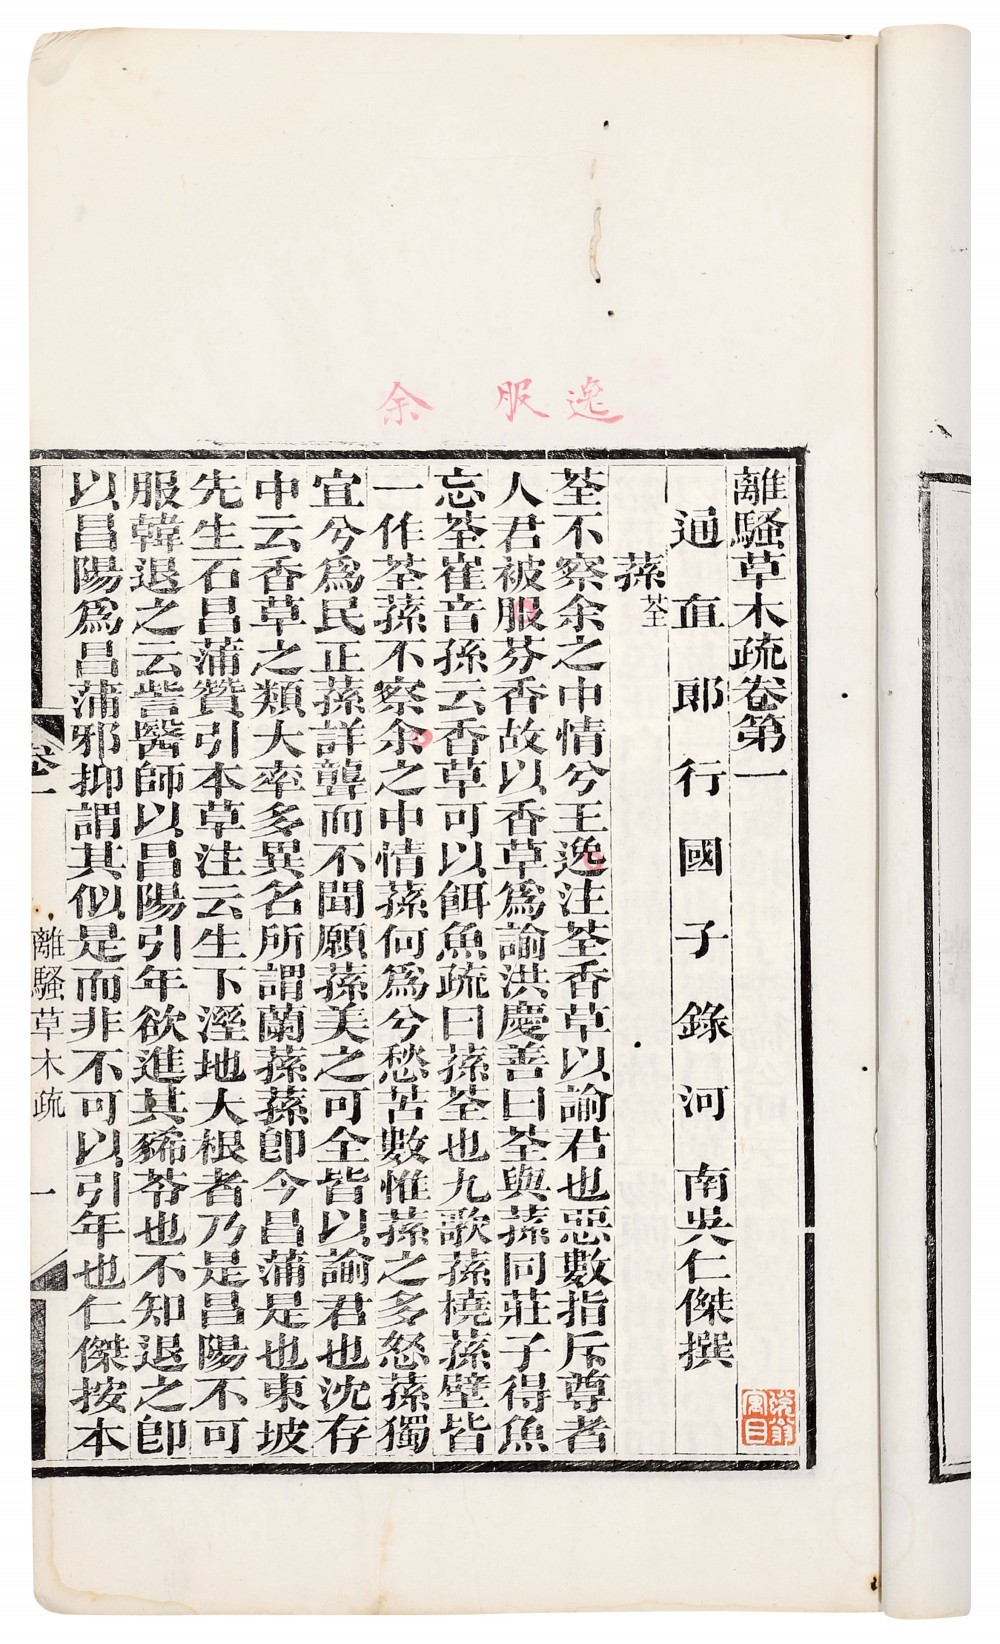 逸　服　余
離騷草木疏卷第一
通直郎行國子錄河南吳仁傑撰
蓀荃
荃不察余之中情兮王逸注荃香草以諭君也惡數指斥尊者
人君被服芬香故以香草爲諭洪慶善曰荃與蓀同莊子得魚
忘荃崔音孫云香草可以餌魚疏曰蓀荃也九歌蓀橈蓀壁皆
一作荃蓀不察余之中情蓀何爲兮愁苦數惟蓀之多怒蓀獨
宜兮爲民正蓀詳聾而不聞願蓀美之可全皆以諭君也沈存
中云香草之類大率多異名所謂蘭蓀蓀卽今昌蒲是也東坡
先生石昌蒲贊引本草注云生下溼地大根者乃是昌陽不可
服韓退之云訾醫師以昌陽引年欲進其豨苓也不知退之卽
以昌陽爲昌蒲邪抑謂其似是而非不可以引年也仁傑按本
卷一
離騷草木疏
一